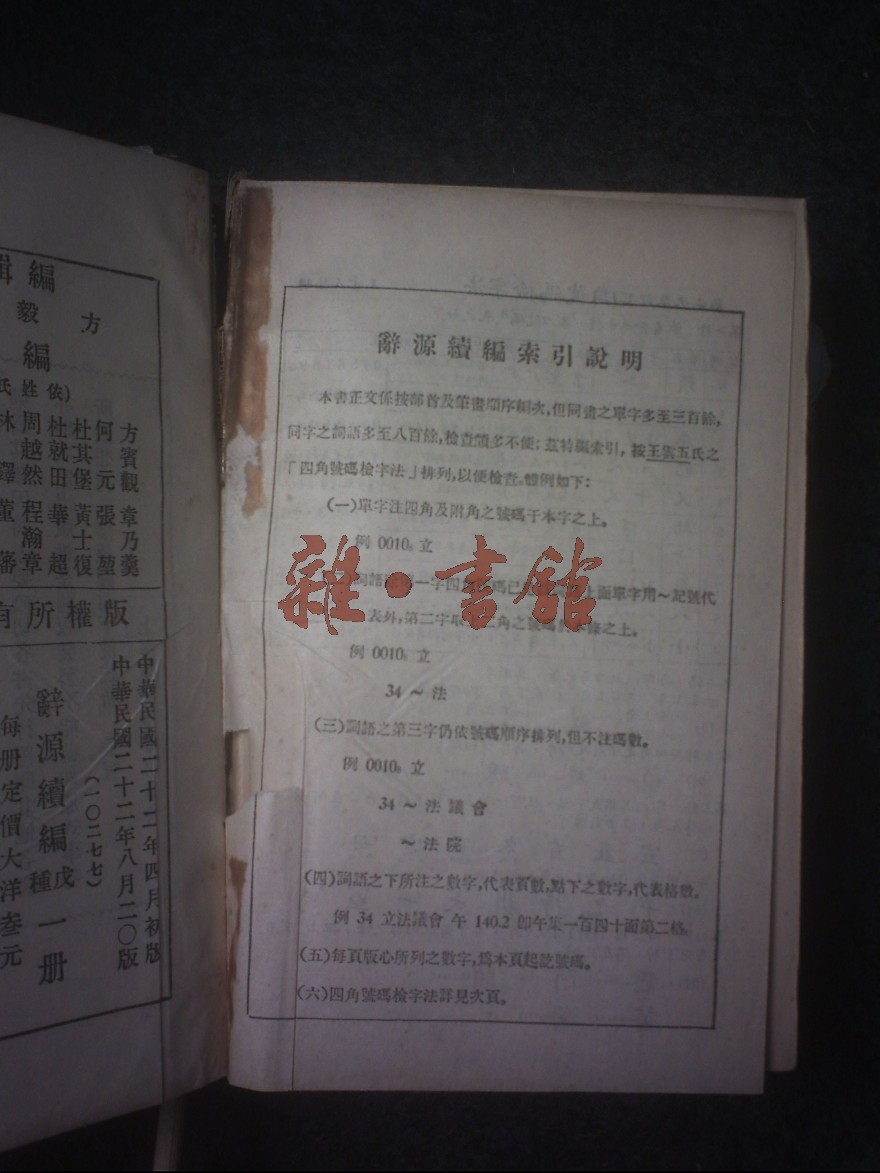 辭源續編索引說明
本書正文係按部首及筆畫順序編次,但同畫之單字多至三百餘,
同字之詞語多至八百餘,檢查頗多不便;茲特編索引,按王雲五氏之
「四角號碼檢字法」排列,以便檢查。體例如下:
(一)單字注四角及附角之號碼于本字之上。
例 0010₈ 立
詞語 第一字四角 碼已 上面單字用~記號代
表外,第二字取 二角之號碼 本條之上。
例 0010₈ 立
34 ~ 法
(三)詞語之第三字仍依號碼順序排列,但不注碼數。
例 0010₈ 立
34 ~ 法議會
~ 法院
(四)詞語之下所注之數字,代表頁數,點下之數字,代表格數。
例 34 立法議會 午 140.2 卽午集一百四十面第二格。
(五)每頁版心所列之數字,爲本頁起訖號碼。
(六)四角號碼檢字法詳見次頁。
雜·書館
輯編
方毅
編
(依姓氏
方賓觀 章乃羹
何元 張堃
杜其堡 黃士復
杜就田 華超
周越然 程瀚章
林鐸 董 審
有所權版
中華民國二十二年四月初版
中華民國二十二年八月二〇版
(一〇二七七)
辭源續編戊種一册
每册定價大洋叁元